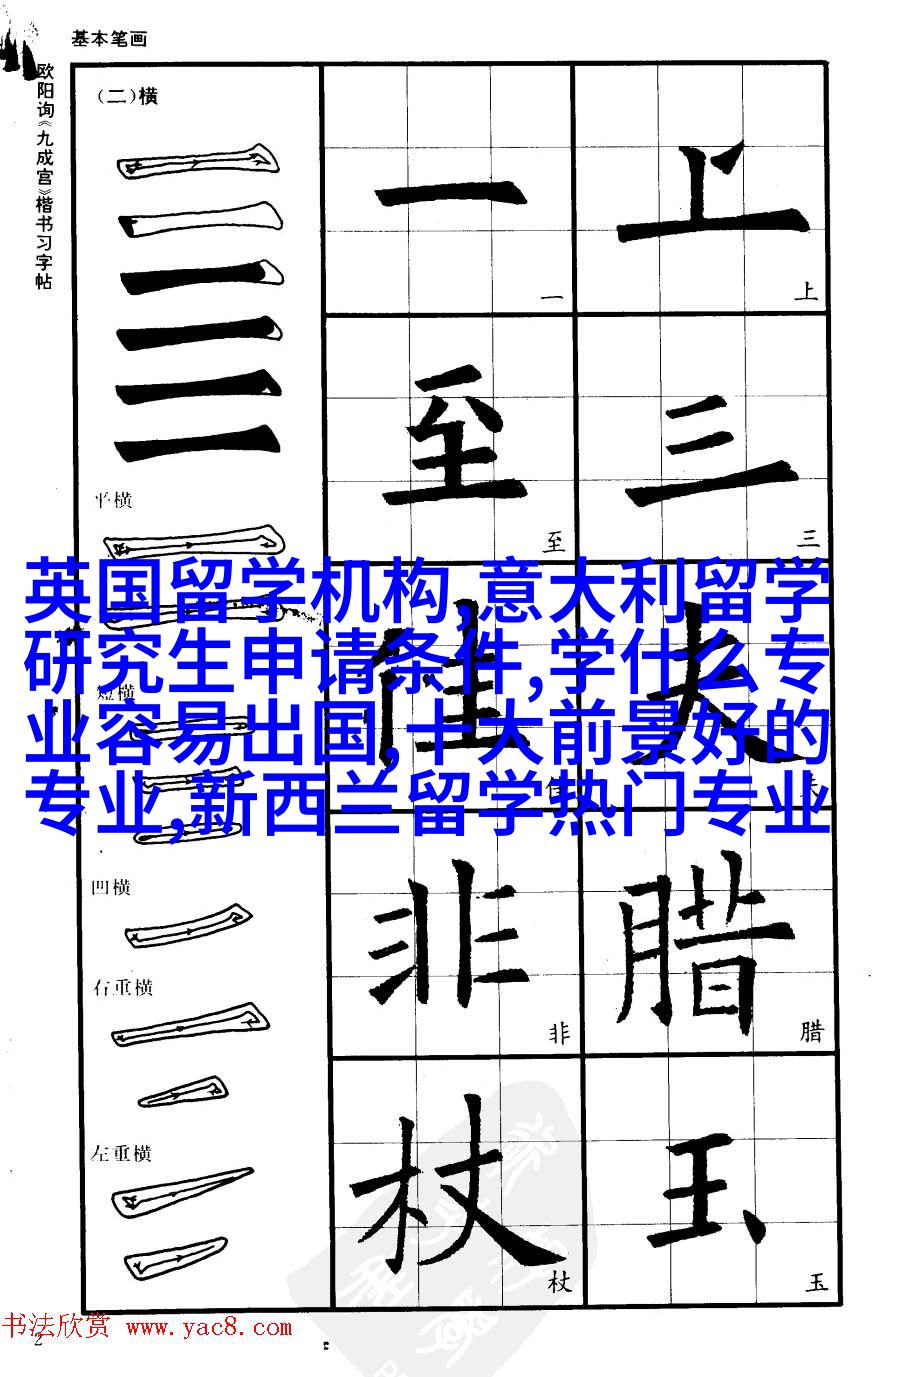 基本笔画
欧阳询《九成宫》楷书习字帖
(二)横
一 上
一 上
平横
至 三
至 三
英国留学机构,意大利留学
研究生申请条件,学什么专
业容易出国,十大前景好的
专业,新西兰留学热门专业
短横
佳 夫
佳 夫
凹横
非 腊
非 腊
右重横
左重横
杖 玉
杖 玉
书法欣赏 www.yac8.com
2